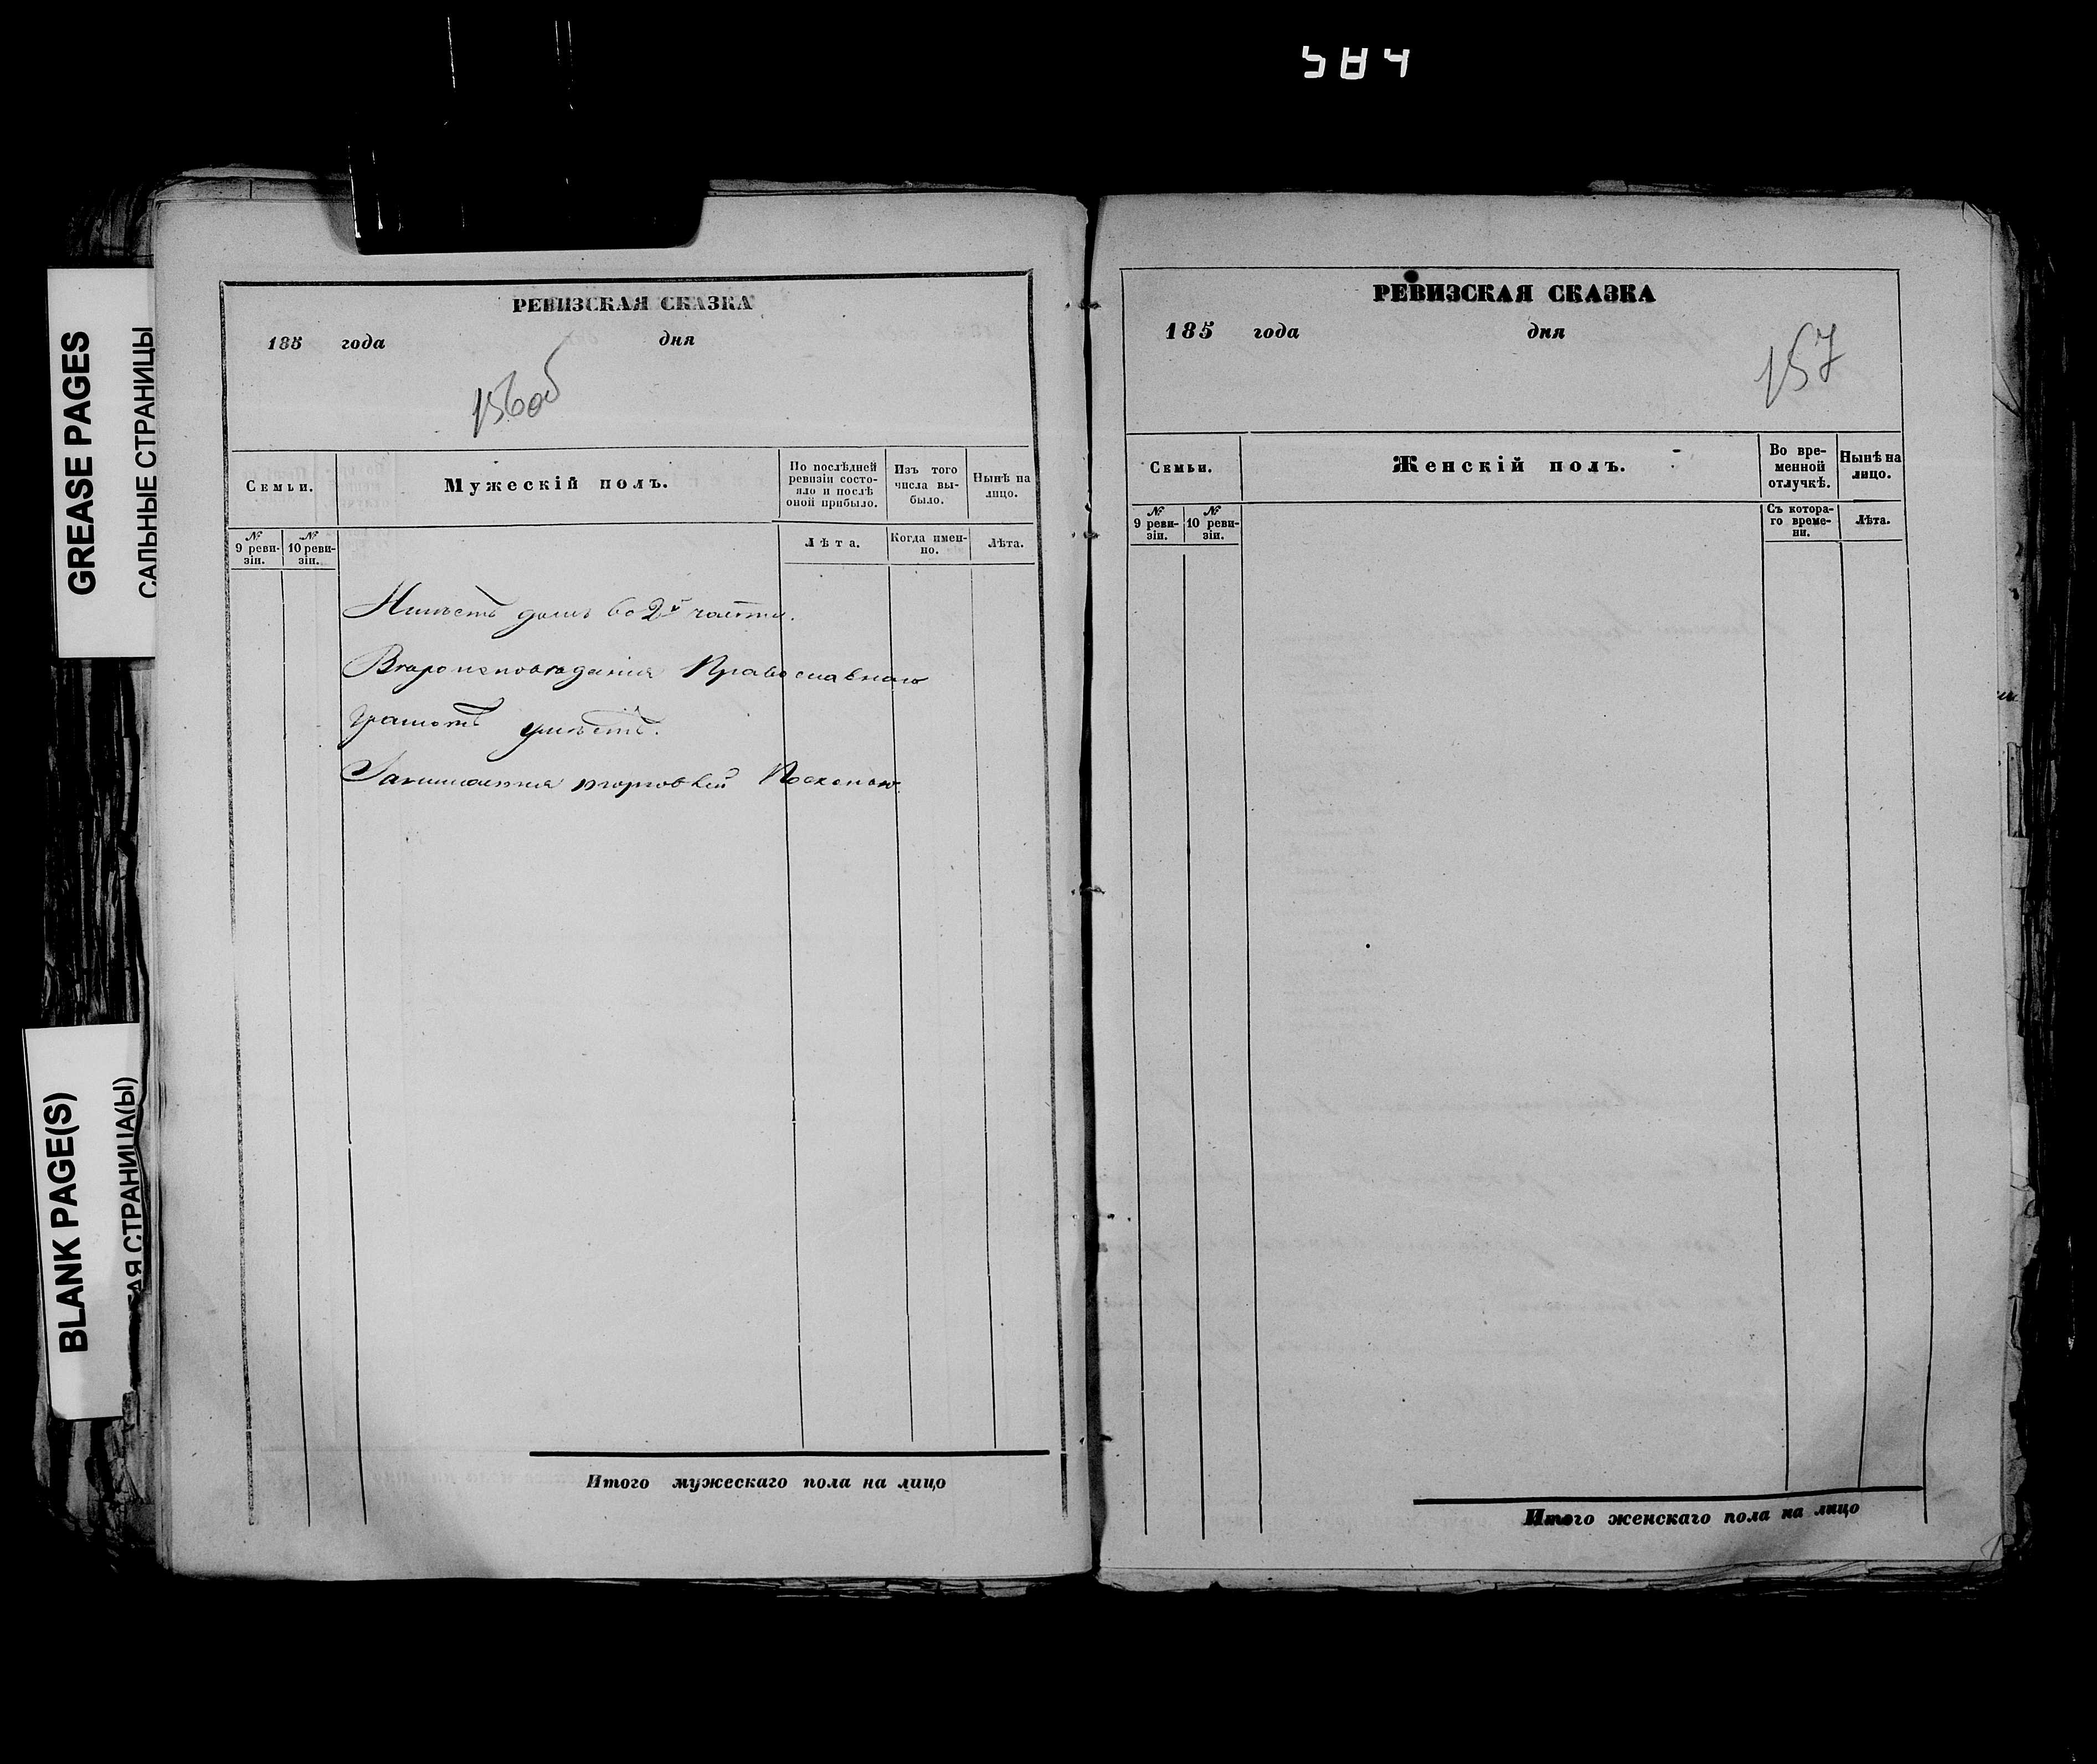 584
GREASE PAGES
САЛЬНЫЕ СТРАНИЦЫ
BLANK PAGE(S)
АЯ СТРАНИЦА(Ы)
РЕВИЗСКАЯ СКАЗКА
185 года дня
156об
Семьи.
Мужескій полъ.
По послѣдней ревизіи состо-
яло и послѣ
оной прибыло.
Изъ того
числа вы-
было.
Нынѣ на
лицо.
№ 9 реви-
зіи.
№ 10 реви-
зіи.
Лѣта.
Когда имен-
но.
Лѣта.
Имѣетъ домъ во 2й части.
Вѣроисповѣданія Православнаго
Грамотѣ умѣетъ.
Занимается торговлей
Итого мужескаго пола на лицо
РЕВИЗСКАЯ СКАЗКА
185 года дня
157
Семьи.
Женскій полъ.
Во вре-
менной
отлучкѣ.
Нынѣ на
лицо.
№ 9 реви-
зіи.
№ 10 реви-
зіи.
Съ котора-
го време-
ни.
Лѣта.
Итого женскаго пола на лицо